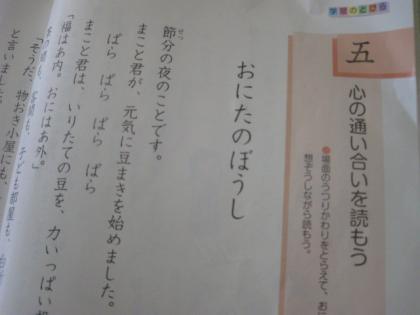 学習のとびら
五
心の通い合いを読もう
●場面のうつりかわりをとらえて、おに
想ぞうしながら読もう。
おにたのぼうし
節分の夜のことです。
まこと君が、元気に豆まきを始めました。
ぱら ぱら ぱら ぱら
まこと君は、いりたての豆を、力いっぱい
「福はあ内。おにはあ外。」
も、客間も、子ども部屋も、
「そうだ、物おき小屋にも、
と言いました